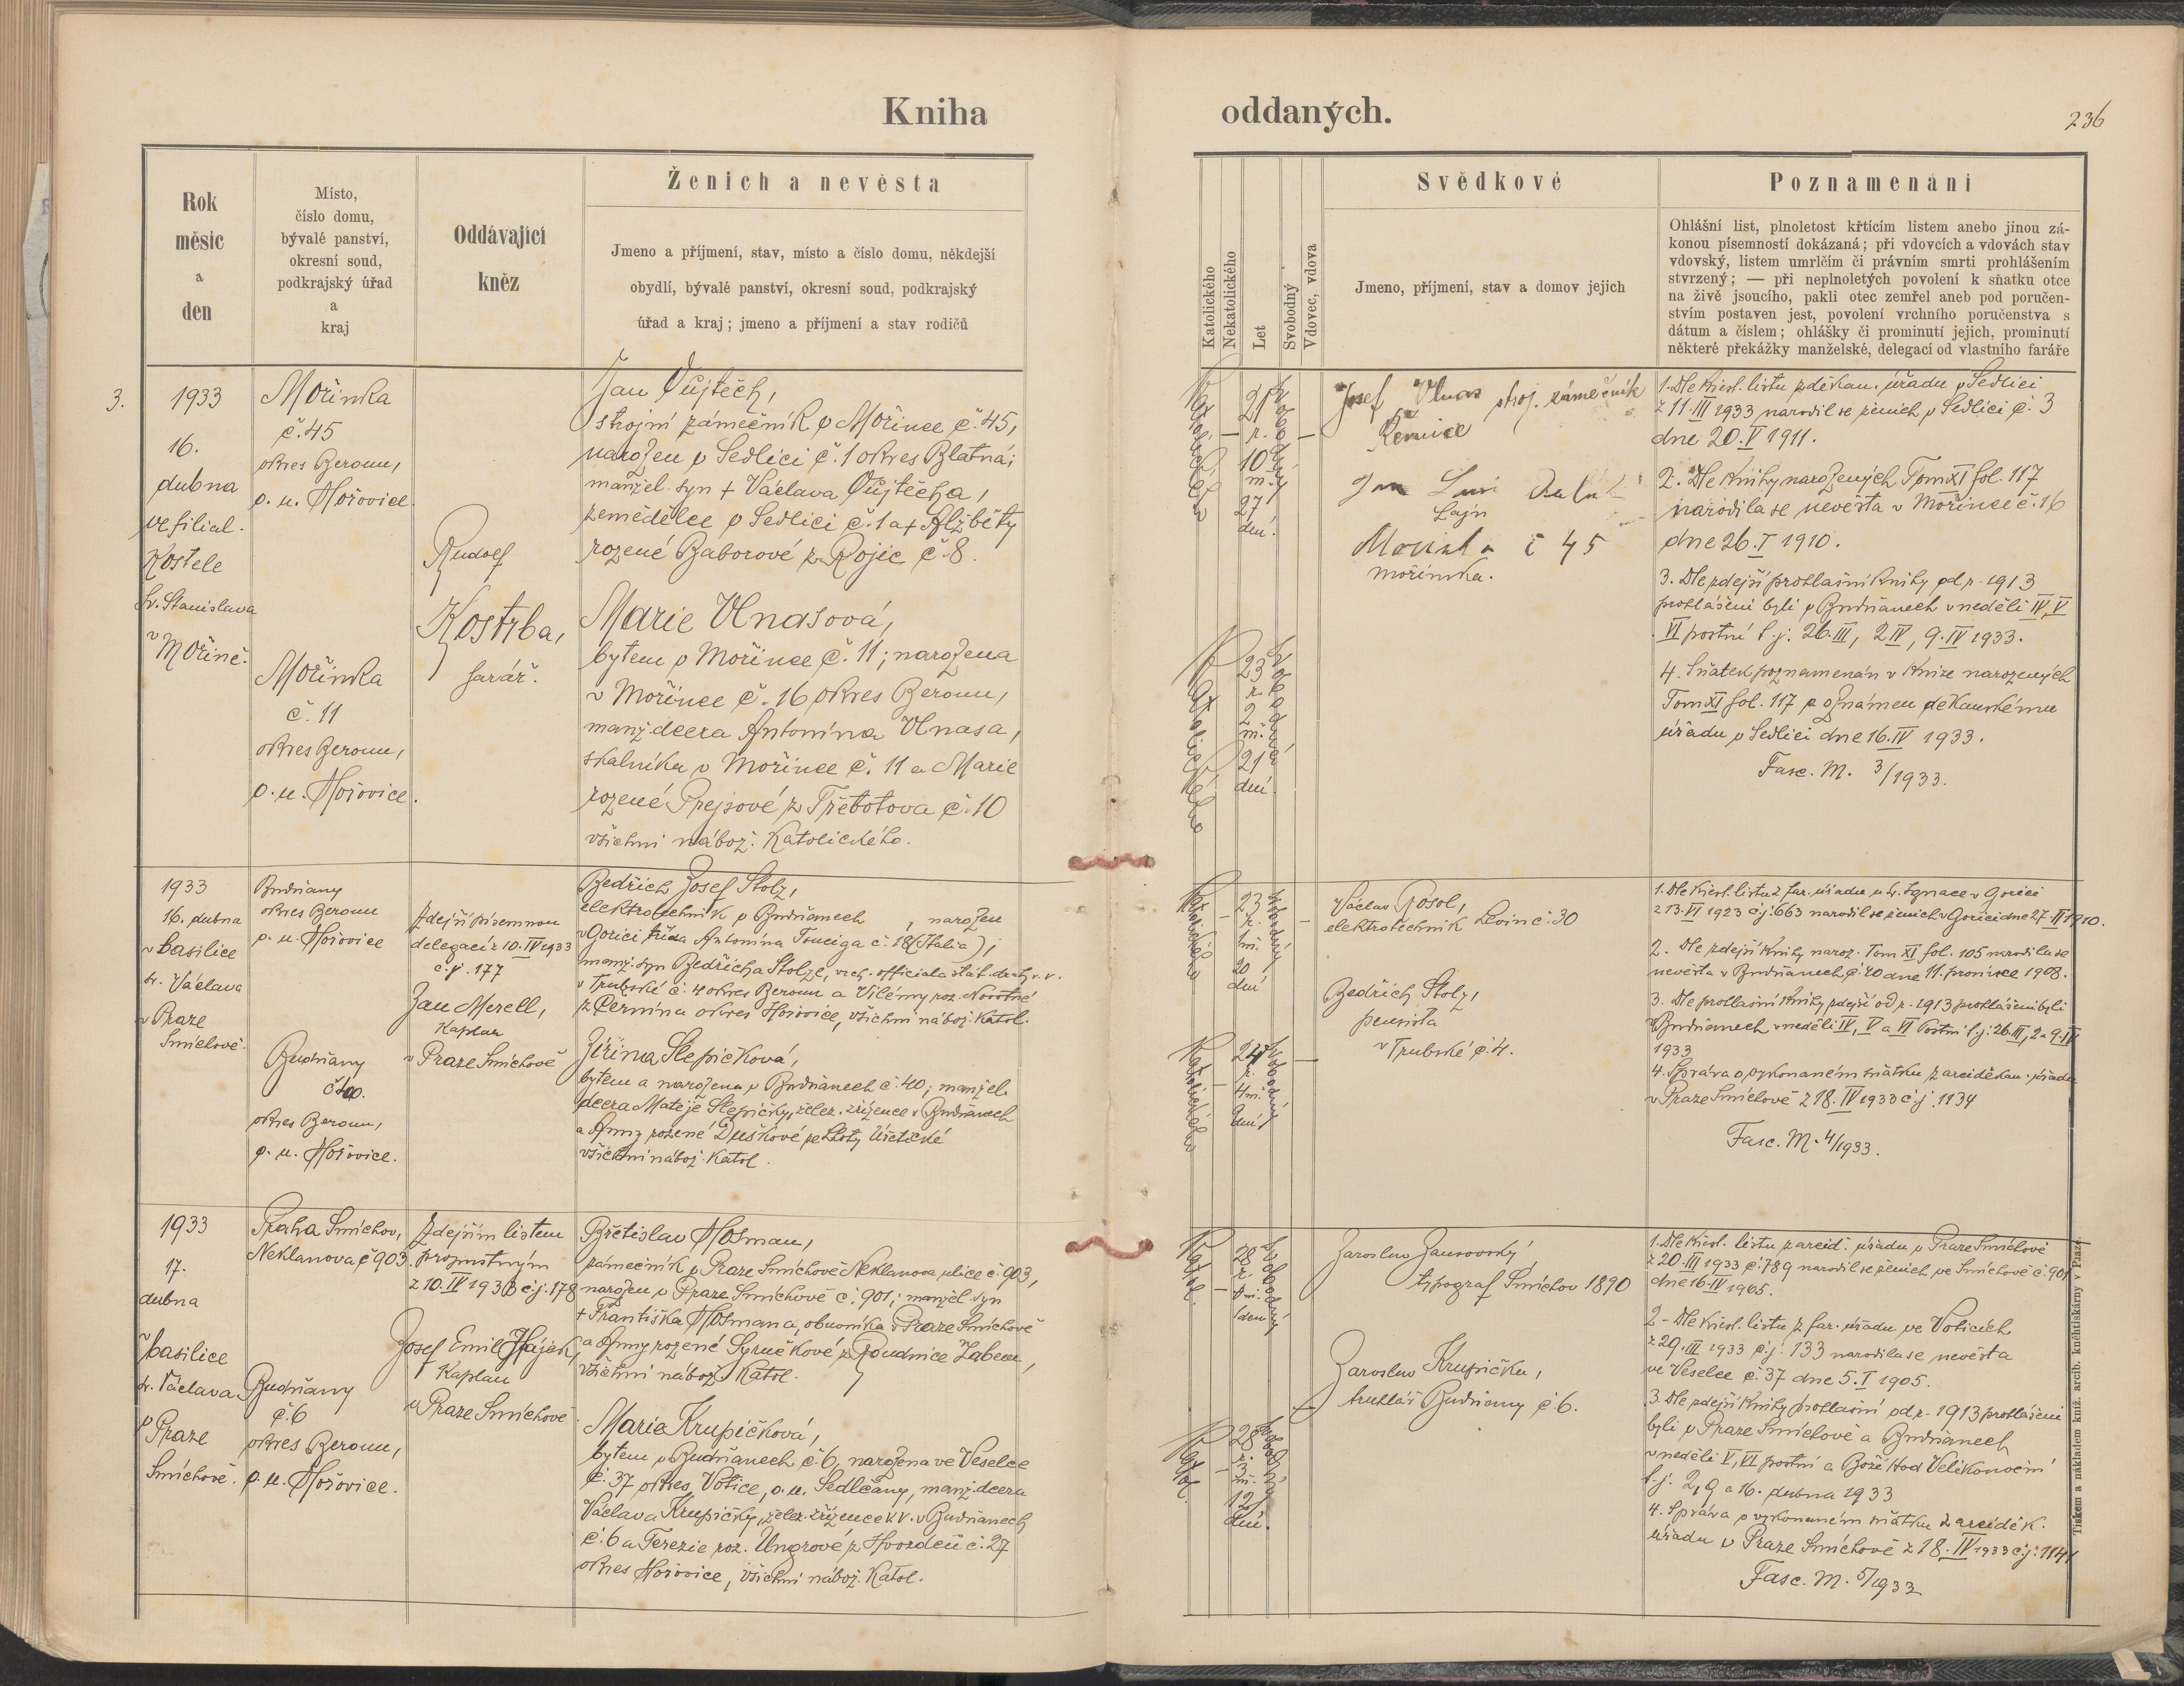 Kniha
oddaných.
236
Rok
měsíc
a
den
Místo,
číslo domu,
bývalé panství,
okresní soud,
podkrajský úřad
a
kraj
Oddávající
kněz
Ženich a nevěsta
Jmeno a příjmení, stav, místo a číslo domu, někdejší
obydlí, bývalé panství, okresní soud, podkrajský
úřad a kraj; jmeno a příjmení a stav rodičů
Katolického
Nekatolického
Let
Svobodný
Vdovec, vdova
Svědkové
Jmeno, příjmení, stav a domov jejich
Poznamenání
Ohlášní list, plnoletost křtícím listem anebo jinou zá-
konou písemností dokázaná; při vdovcích a vdovách stav
vdovský, listem umrlčím či právním smrti prohlášením
stvrzený; — při neplnoletých povolení k sňatku otce
na živě jsoucího, pakli otec zemřel aneb pod poručen-
stvím postaven jest, povolení vrchního poručenstva s
dátum a číslem; ohlášky či prominutí jejich, prominutí
některé překážky manželské, delegací od vlastního faráře
3.
1933
16.
dubna
ve filial.
Kostele
Sv. Stanislava
v
Mořině.
Mořinka
č. 45
okres Beroun,
p. u. Hořovice.
Mořinka
č. 11
okres Beroun,
p. u. Hořovice.
Rudolf
Kostrba,
farář.
Jan Vůjtěch,
strojní zámečník v Mořince č. 45,
narozen v Sedlici č. 1 okres Blatná;
manžel. syn + Václava Vůjtěcha,
zemědělce v Sedlici č. 1 a + Alžběty
rozené Baborové z Rojic č. 8.
Marie Vlnasová,
bytem v Mořince č. 11; narozena
v Mořince č. 16 okres Beroun,
manž dcera Antonína Vlnasa,
skalníka v Mořince č. 11 a Marie
rozené Prejsové z Třebotova č. 10
všichni nábož. Katolického.
Katolického
21
r.
10
m.
27
dní.
Svobodný
Katolického
23
r.
2
m.
21
dní.
Svobodná
Josef Vlnas stroj. zámečník
Řevnice
Jan
Lajn
č 45
Mořinka.
1. Dle křest. listu z děkan. úřadu v Sedlici
z 11. III 1933 narodil se ženich v Sedlici č. 3
dne 20. V 1911.
2. Dle Knihy narozených Tom XI fol. 117
narodila se nevěsta v Mořince č. 16
dne 26. I 1910.
3. Dle zdejší prohlašní knihy od r. 1913
prohlášeni byli v Budňanech v neděli IV, V
VI postní t. j. 26. III, 2 IV, 9. IV 1933.
4. Sňatek poznamenán v Knize narozených
Tom XI fol. 117 a oznámen děkanskému
úřadu v Sedlici dne 16. IV 1933.
Fasc. M. 3/1933.
1933
16. dubna
v basilice
sv. Václava
v Praze
Smíchově.
Budňany
okres Beroun
p. u. Hořovice
Budňany
č. 40.
okres Beroun,
p. u. Hořovice.
Zdejší písemnou
delegací z 10. IV 1933
č. j. 177
Jan Merell,
Kaplan
v Praze Smíchově
Bedřich Josef Stolz,
elektrotechnik v Budňanech , narozen
v Gorici třída Antonína č. 18 (Italie);
manž. syn Bedřicha Stolze, vrch. officiala stát. drah v. v.
v Trubské č. 4 okres Beroun a Vilémy roz. Novotné
z Čermína okres Hořovice, všichni nábož. Katol.
Jiřina Slepičková,
bytem a narozena v Budňanech č. 40; manžel.
dcera Matěje Slepičky, želez. zřízence v Budňanech
a Anny rozené Duškové ze Lhoty Úřetické
všichni nábož. Katol.
Katolického
23
r.
1 m.
20
dní
Svobodný
Katolického
24
r.
4 m.
dní
Václav Posol,
elektrotechnik č. 30
Bedřich Stolz,
pensista
v Trubské č. 4.
1. Dle křest. listu z far. úřadu u sv. Ignace v Gorici
z 13. VI 1923 č. j. 663 narodil se ženich v Gorici dne 27. II 1910.
2. Dle zdejší knihy naroz. Tom XI fol. 105 narodila se
nevěsta v Budňanech č. 40 dne 11. prosince 1908.
3. Dle prohlašní knihy zdejší od r. 1913 prohlášeni byli
v Budňanech v neděli IV, V a VI Postní t. j. 26. III, 2 a 9. IV
1933
4. Zpráva o vykonaném sňatku z arciděkan. úřadu
v Praze Smíchově z 18. IV 1933 č. j. 1134
Fasc. M. 4/1933.
1933
17.
dubna
v basilice
sv. Václava
v Praze
Smíchově.
Praha Smíchov,
Neklanova č 903.
Budňany
č. 6
okres Beroun,
p. u. Hořovice.
Zdejším listem
propustným
z 10. IV 1933 č. j. 178
Josef Emil Hájek,
Kaplan
v Praze Smíchově.
Břetislav Hosman,
zámečník v Praze Smíchově Neklanova ulice č. 903,
narozen v Praze Smíchově č. 901; manžel syn
+ Františka Hosmana, obuvníka v Praze Smíchově
a Anny rozené Syručkové z Roudnice Labem,
všichni nábož. Katol.
Marie Krupičková,
bytem v Budňanech č. 6, narozena ve Veselce
č. 37 okres Votice, p. u. Sedlčany, manž. dcera
Václava Krupičky, želez. zřízence v v. v Budňanech
č. 6 a Terezie roz. Ungrové z Hvozdců č. 27
okres Hořovice, všichni nábož. Katol.
Katol.
28
r.
1 den
Svobodný
Katol.
28
r.
3
m.
12
dní.
Jaroslav Janovský
typograf Smíchov 1890
Jaroslav Krupička,
truhlář Budňany č 6.
1. Dle křest. listu z arcid. úřadu v Praze Smíchově
z 20. III 1933 č. j. 789 narodil se ženich ve Smíchově č. 901
dne 16. IV 1905.
2. Dle křest. listu z far. úřadu ve Voticích
z 29. III 1933 č. j. 133 narodila se nevěsta
ve Veselce č. 37 dne 5. I 1905.
3. Dle zdejší knihy prohlašní od r. 1913 prohlášeni
byli v Praze Smíchově a Budňanech
v neděli V, VI postní a Boží Hod Velikonoční
t. j. 2, 9 a 16. dubna 1933
4. Zpráva o vykonaném sňatku z arciděk.
úřadu v Praze Smíchově z 18. IV 1933 č. j. 1141
Fasc. M. 5/1933
Tiskem a nákladem kníž. arcib. knihtiskárny v Praze.